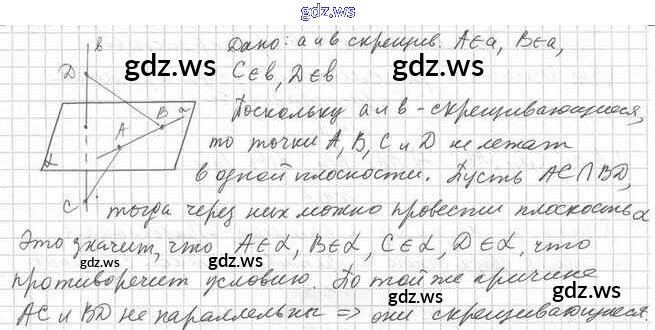 gdz.ws
Дано: a и b скрещив. A∈a, B∈a,
C∈b, D∈b
gdz.ws gdz.ws
Поскольку a и b - скрещивающиеся,
то точки A, B, C и D не лежат
в одной плоскости. Пусть AC∩BD,
тогда через них можно провести плоскость α
Это значит, что A∈α, B∈α, C∈α, D∈α, что
противоречит условию. По той же причине
AC и BD не параллельны ⇒ они скрещивающиеся.
b
D
B a
A
α
C
gdz.ws gdz.ws
gdz.ws gdz.ws